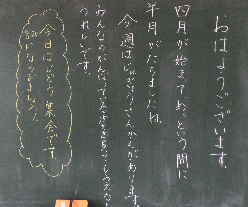 おはようございます。
四月が始まってあっという間に
半月がたちましたね。
今週はじゅぎょうさんかんがあります。
みんなのがんばっているところを見てもらえると
うれしいです。
今日は 集会です。